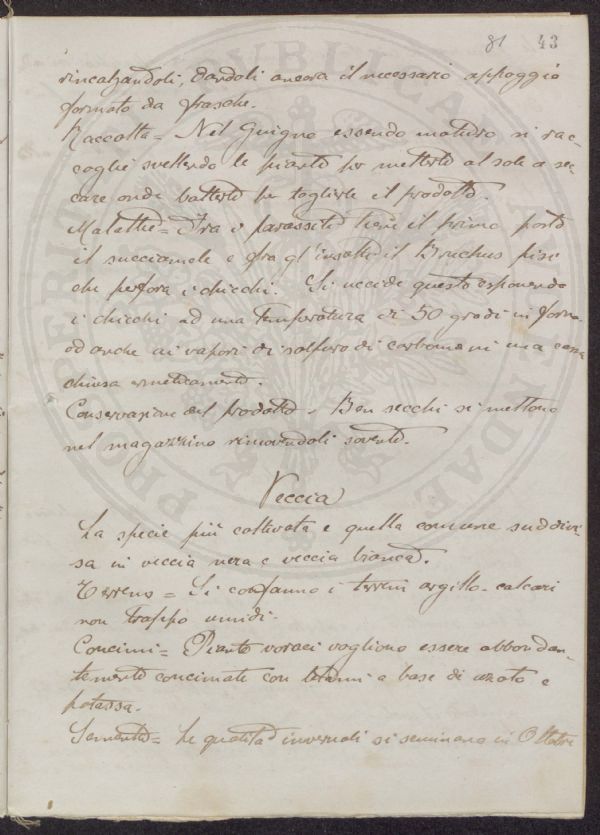 81 43
rincalzandoli, dandoli ancora il necessario appoggio
formato da frasche.
Raccolta = Nel Giugno essendo maturo si rac-
coglie svellendo le piante per metterle al sole a sec-
care onde batterle per toglierle il prodotto.
Malattie = Fra i parassiti tiene il primo posto
il succiamele e fra gl'insetti il Bruchus pisi
che perfora i chicchi. Si uccide questo esponendo
i chicchi ad una temperatura di 50 gradi in forno
od anche ai vapori di solfuro di carbonio in una cassa
chiusa ermeticamente.
Conservazione del prodotto = Ben secchi si mettono
nel magazzino rimovendoli sovente.
Veccia
La specie più coltivata è quella comune suddivi-
sa in veccia nera e veccia bianca.
Terreno = Si confanno i terreni argillo-calcari
non troppo umidi.
Concimi = Piante voraci vogliono essere abbondan-
temente concimate con letami a base di azoto e
potassa.
Semente = Le qualità invernali si seminano in Ottobre
PROSPERITATI PUBLICAE AUGENDAE